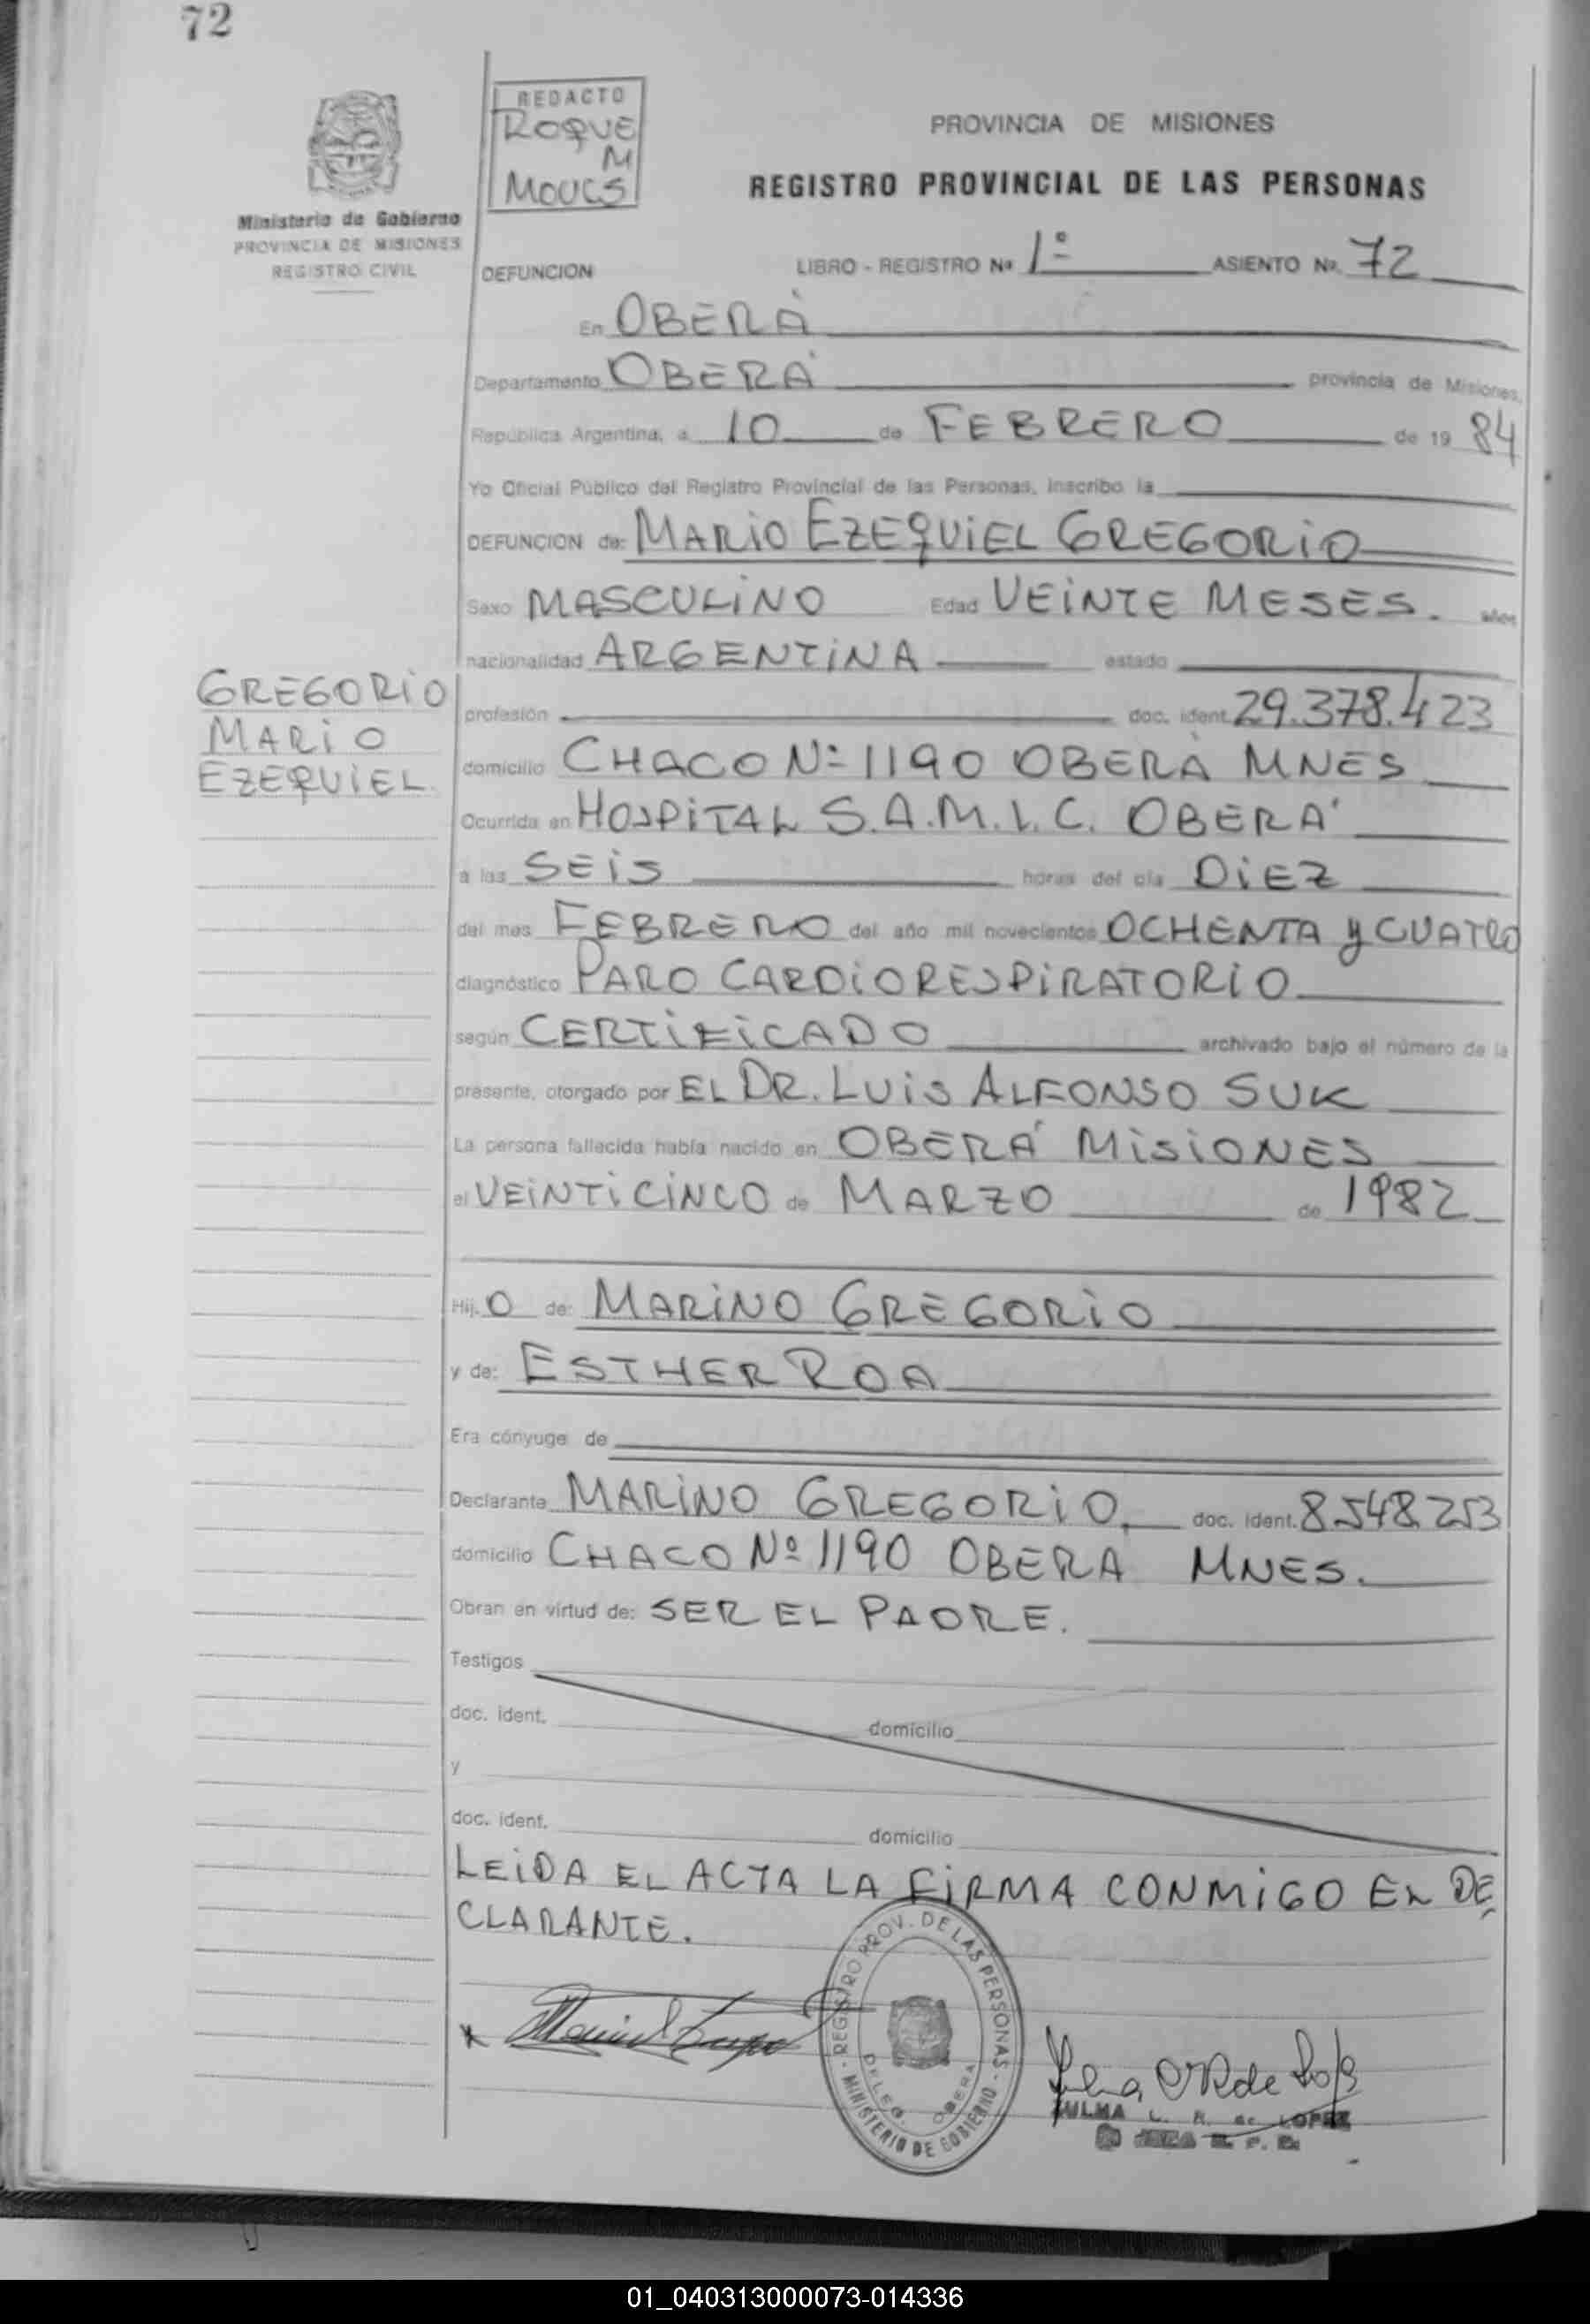 72
REDACTO
ROQUE
M
MOUCS
Ministerio de Gobierno
PROVINCIA DE MISIONES
REGISTRO CIVIL
PROVINCIA DE MISIONES
REGISTRO PROVINCIAL DE LAS PERSONAS
DEFUNCION LIBRO - REGISTRO Nº 1º ASIENTO Nº. 72
En OBERÁ
Departamento OBERÁ provincia de Misiones,
República Argentina, a 10 de FEBRERO de 19 84
Yo Oficial Público del Registro Provincial de las Personas, inscribo la
DEFUNCION de: MARIO EZEQUIEL GREGORIO
Sexo MASCULINO Edad VEINTE MESES. años
nacionalidad ARGENTINA estado
GREGORIO
MARIO
EZEQUIEL.
profesión doc. ident. 29.378.423
domicilio CHACO Nº 1190 OBERÁ MNES
Ocurrida en HOSPITAL S.A.M.I.C. OBERÁ
a las SEIS horas del día DIEZ
del mes FEBRERO del año mil novecientos OCHENTA Y CUATRO
diagnóstico PARO CARDIORESPIRATORIO
según CERTIFICADO archivado bajo el número de la
presente, otorgado por EL DR. LUIS ALFONSO SUK
La persona fallecida había nacido en OBERÁ MISIONES
el VEINTICINCO de MARZO de 1982
Hij O de: MARINO GREGORIO
y de: ESTHER ROA
Era cónyuge de
Declarante MARINO GREGORIO. doc. ident. 8548253
domicilio CHACO Nº 1190 OBERA MNES.
Obran en virtud de: SER EL PADRE.
Testigos
doc. ident. domicilio
y
doc. ident. domicilio
LEIDA EL ACTA LA FIRMA CONMIGO EL DE
CLARANTE.
REGISTRO PROV. DE LAS PERSONAS - MINISTERIO DE GOBIERNO -
DELEG. OBERA
ZULMA L. R. de LOPEZ
01_040313000073-014336